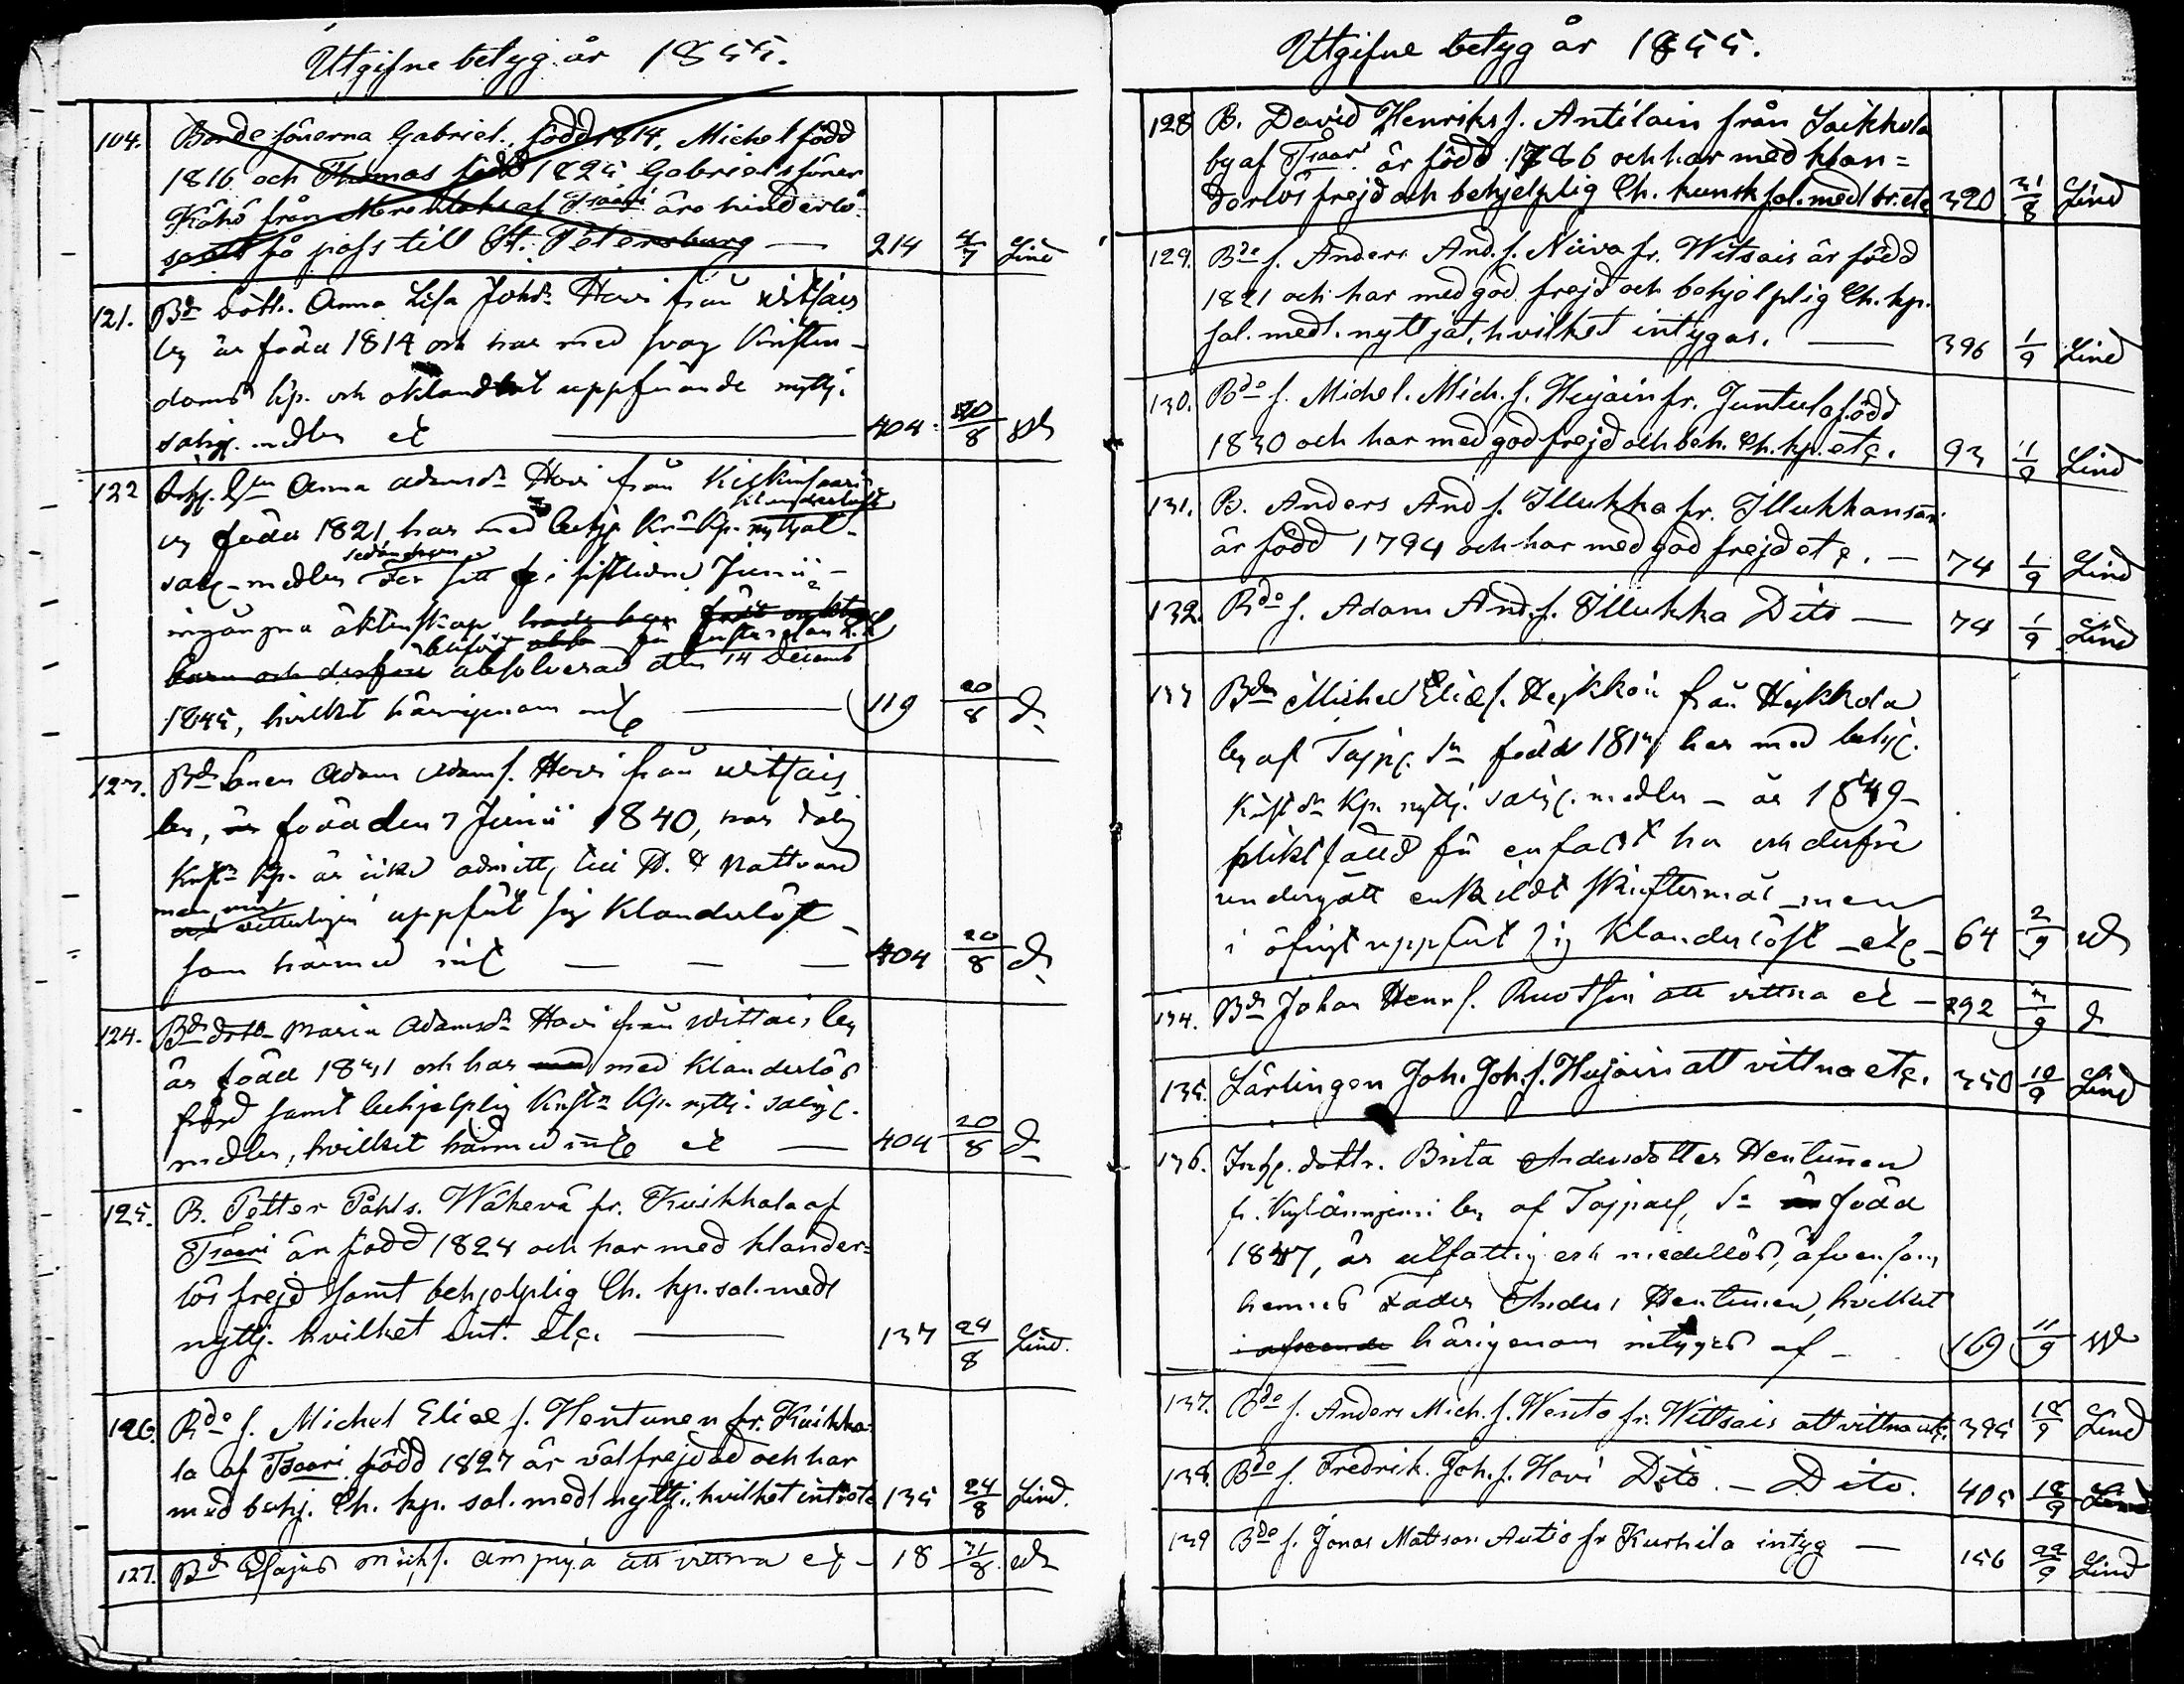 Utgifne betyg år 1855.
104. Bonde sönerna Gabriel, född 1814, Michel född
1816 och Thomas född 1825 Gabrielssöner
Kähö från af Tsaari äro hinderlö-
på pass till St. Petersburg — 214 4/7 Lind
121. Bd dott. Anna Lisa Johsdr Hovi från Witsais
by är född 1814 och har med svag Kristen-
doms kp. och oklandrat uppförande nyttj.
salig. medlen etc — 404 20/8
122 Anna Adamsdr Hovi från Kiskinsaari
by född 1821, har med behj. Kr. Kp. nyttjat
salig. medlen sistlidne Junii
ingångna äktenskap
barn och derföre absolverad den 14 Decemb
1845, hvilket härigenom — 119 20/8 do
123. Bd Sonen Adam Adams. Hovi från Witsais
by, är född den 7 Junii 1840, har dålig
Krist. Kp. är icke admitt. till H. H. Nattvard
men veterligen uppfört sig klanderlöst
som härmed — — — 404 20/8 do
124. Bd dottr Maria Adamsdr Hovi från Witsais by
är född 1831 och har med klanderlös
frejd samt behjelplig Krist. Kp. nyttj. salig.
medlen, hvilket härmed etc — 404 20/8 do
125. B. Petter Påhls. Wäkevä fr. Kuikkala af
Tsaari är född 1824 och har med klander-
lös frejd samt behjelplig Ch. kp. sal. medl
nyttj. hvilket int. etc. — 137 24/8 Lind.
126. Bde s. Michel Elias s. Hentunen fr. Kuikka-
la af Tsaari född 1827 är välfrejdad och har
med behj. Ch. kp. sal. medl nyttj. hvilket 135 24/8 Lind.
127. Bd Esajas Michs. Ampuja att vittna etc – 18 31/8
Utgifne betyg år 1855.
128 B. David Henriks s. Antilain från Saikkola
by af Tsaari är född 1786 och har med klan=
derlös frejd och behjelplig Ch. kunsk sal. medl etc 320 31/8 Lind
129. Bde s. Anders And. s. Niiva fr. Witsais är född
1821 och har med god frejd och behjelplig Ch. kp.
sal. medl. nyttjat, hvilket intygas. — 396 1/9 Lind
130. Bdo s. Michel. Mich. s. Heijain fr. Juntula född
1830 och har med god frejd och beh. Ch. kp. etc. 93 1/9 Lind
131. B. Anders And s. Illukka fr. Illukkansaari
är född 1794 och har med god frejd etc. – 74 1/9 Lind
132. Bdo s. Adam And. s. Illukka Dito — 74 1/9 Lind
133 Bdn Michel Elias s. Heikkoin från Heikkola
by af född har med behj.
Krist. Kp. nyttj. salig. medlen – år 1849
pliktfälld för enfaldt hor och derföre
undergått enskildt skriftermål – men
i öfrigt uppfört sig klanderlöst – etc – 64 2/9
134. Bd Johan Henr s. Ruotsin att vittna etc – 292 3/9 do
135. Lärlingen Joh. Joh. s. Heijain att vittna etc. 350 10/9 Lind
136. Inhys. dottr. Brita Andersdotter Hentunen
by af född
1847, är utfattig och medellös, äfvensom
hennes Fader Anders Hentunen, hvilket
härigenom intygas af – 169 11/9
137. Bdo s. Anders Mich. s. Wento fr. Wittsais att vittna etc. 395 18/9 Lind
138. Bdo s. Fredrik. Joh. s. Hovi Dito. – Dito. 405 18/9 Lind
139 Bdo s. Jonas Mattson Autio fr Kurkila intyg — 156 22/9 Lind